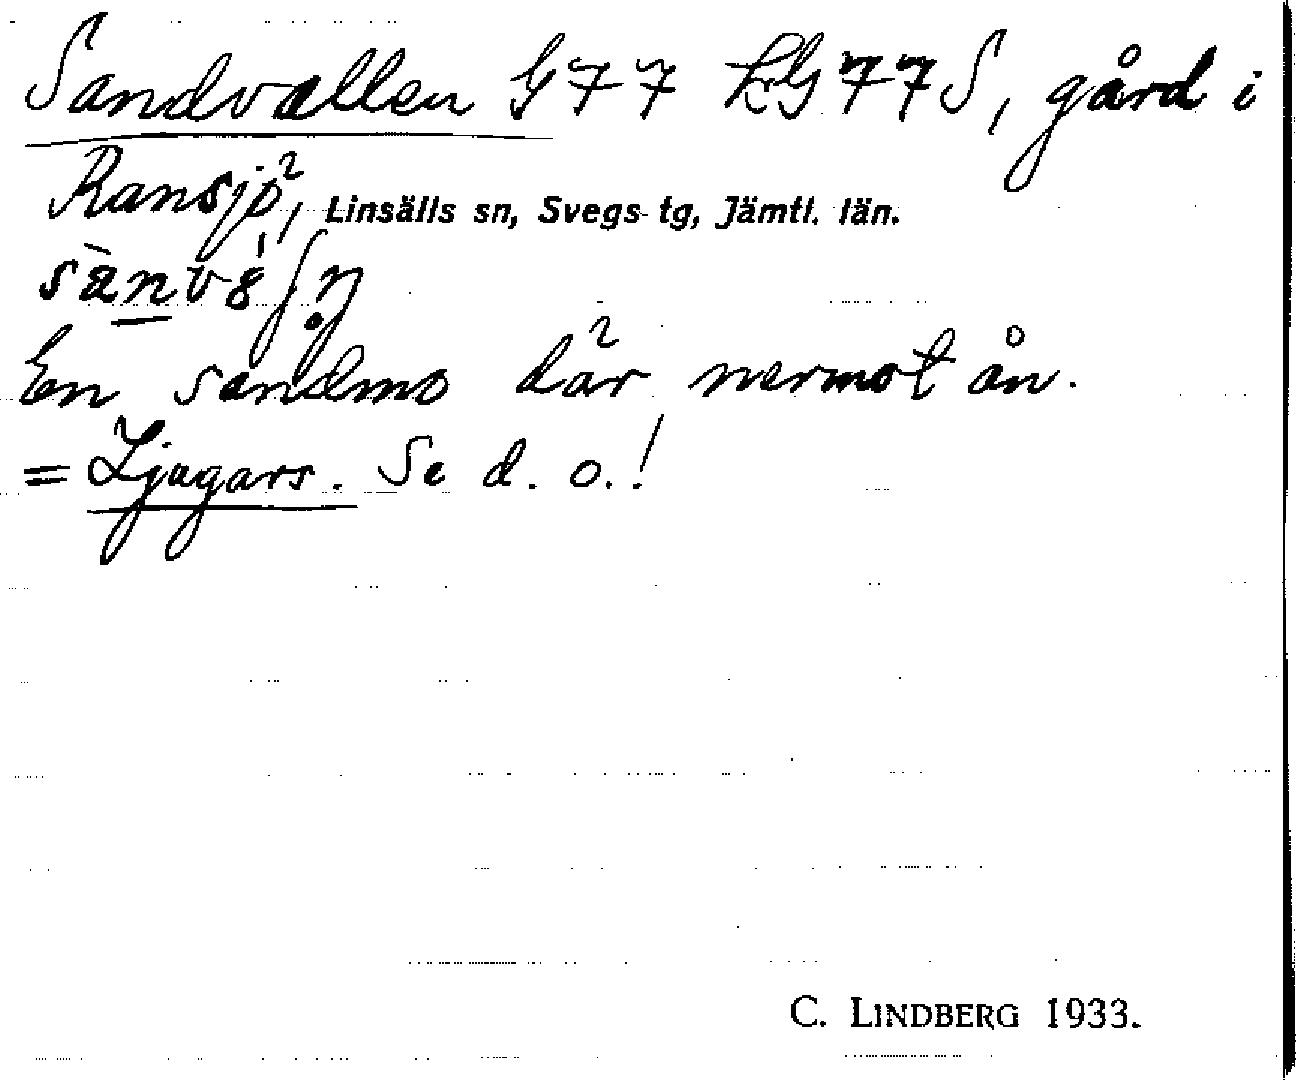 Sandvallen G77 LG77S, gård i
Ransjö, Linsälls sn, Svegs tg, Jämtl. län.
En sandmo där nermot ån.
= Ljugars. Se d. o.!
C. LINDBERG 1933.